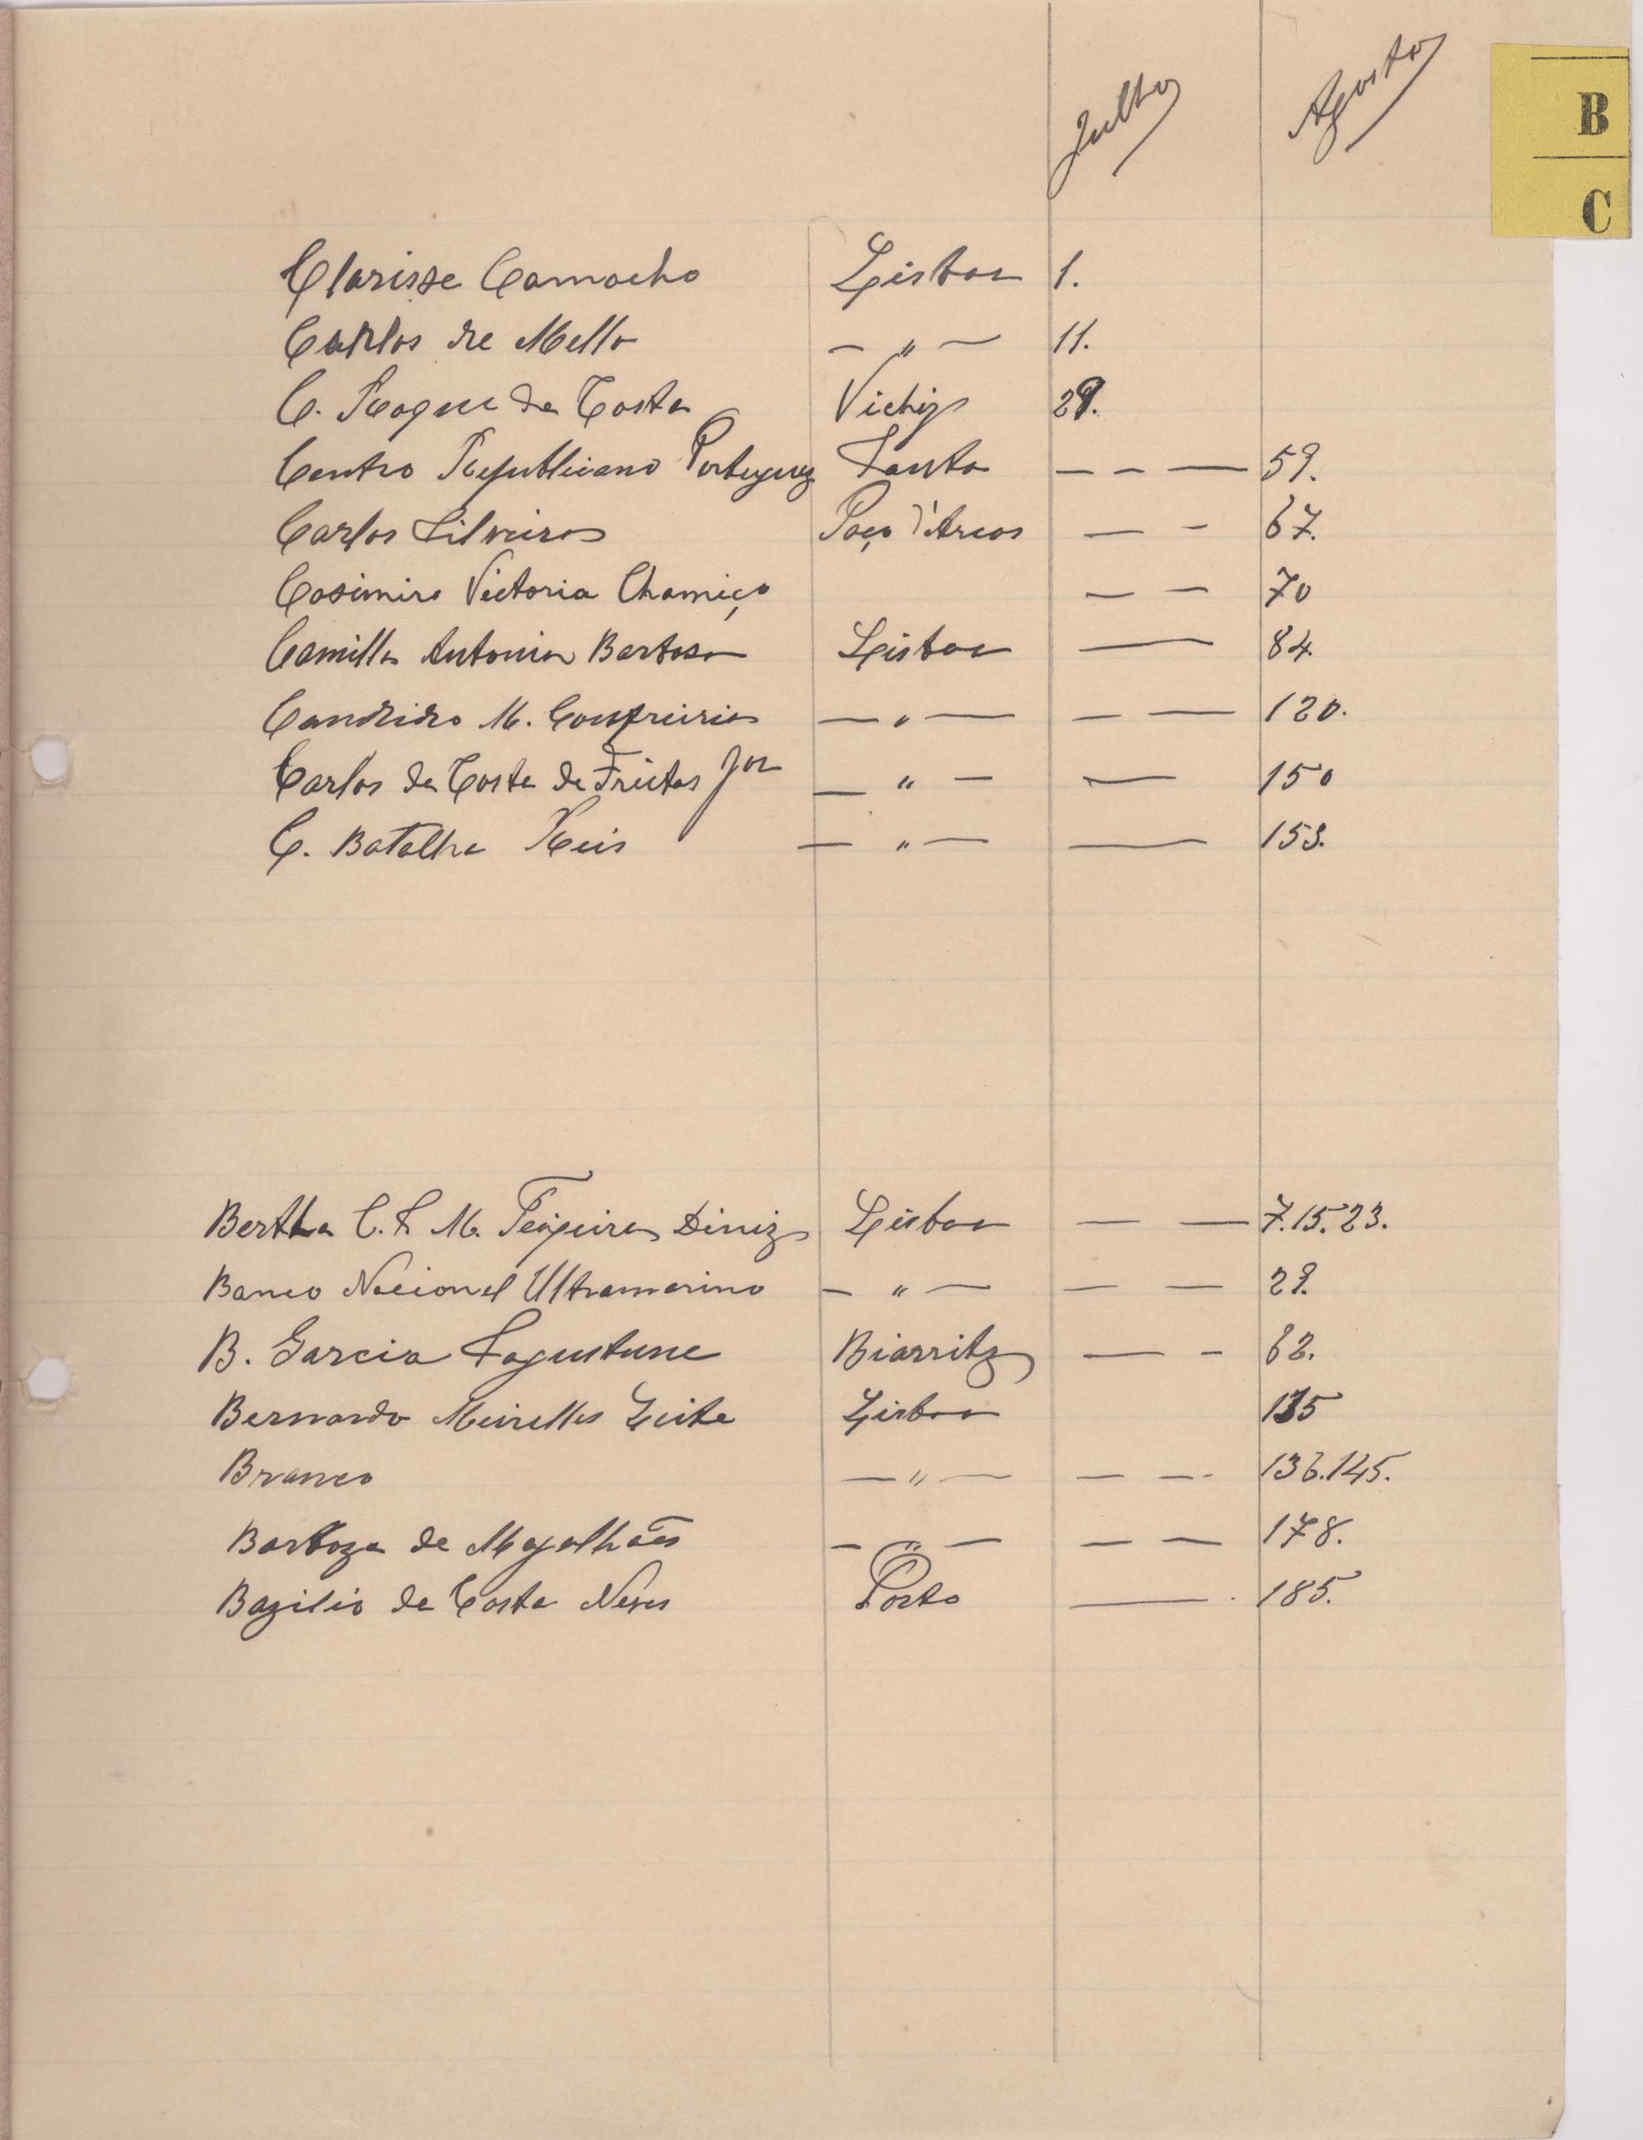 Julho Agosto
B
C
Clarisse Camacho Lisboa 1.
Carlos de Mello — " — 11.
C. Roque da Costa Vichy 29.
Centro Republicano Portuguez — — — 59.
Carlos Silveira Paço d'Arcos — - 67.
Casimiro Victoria Chamiço — — 70
Camillo Antonio Barbosa Lisboa — 84.
Candido M. — " — — — 120.
Carlos da Costa de Freitas Jor — " — — 150
C. Batalha Reis — " — — 153.
Bertha C. S. M. Teixeira Diniz Lisboa — — 7.15.23.
Banco Nacional Ultramarino — " — — — 29.
B. Garcia Biarritz — - 62.
Bernardo Meirelles Leite Lisboa 135
Branco — " — — — 136.145.
Barboza de Magalhães — " — — — 178.
Bazilio da Costa Neves Porto — 185.